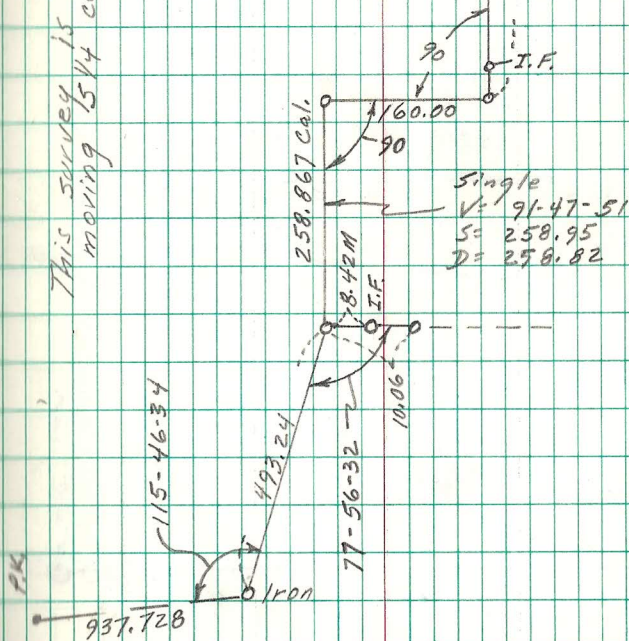 This survey is
moving 15 1/4
90
I.F.
160.00
90
258.867 Cal.
Single
V= 91-47-51
S= 258.95
D= 258.82
8.42M
I.F.
10.06
115-46-34
493.24
77-56-32
P.K.
Iron
937.728